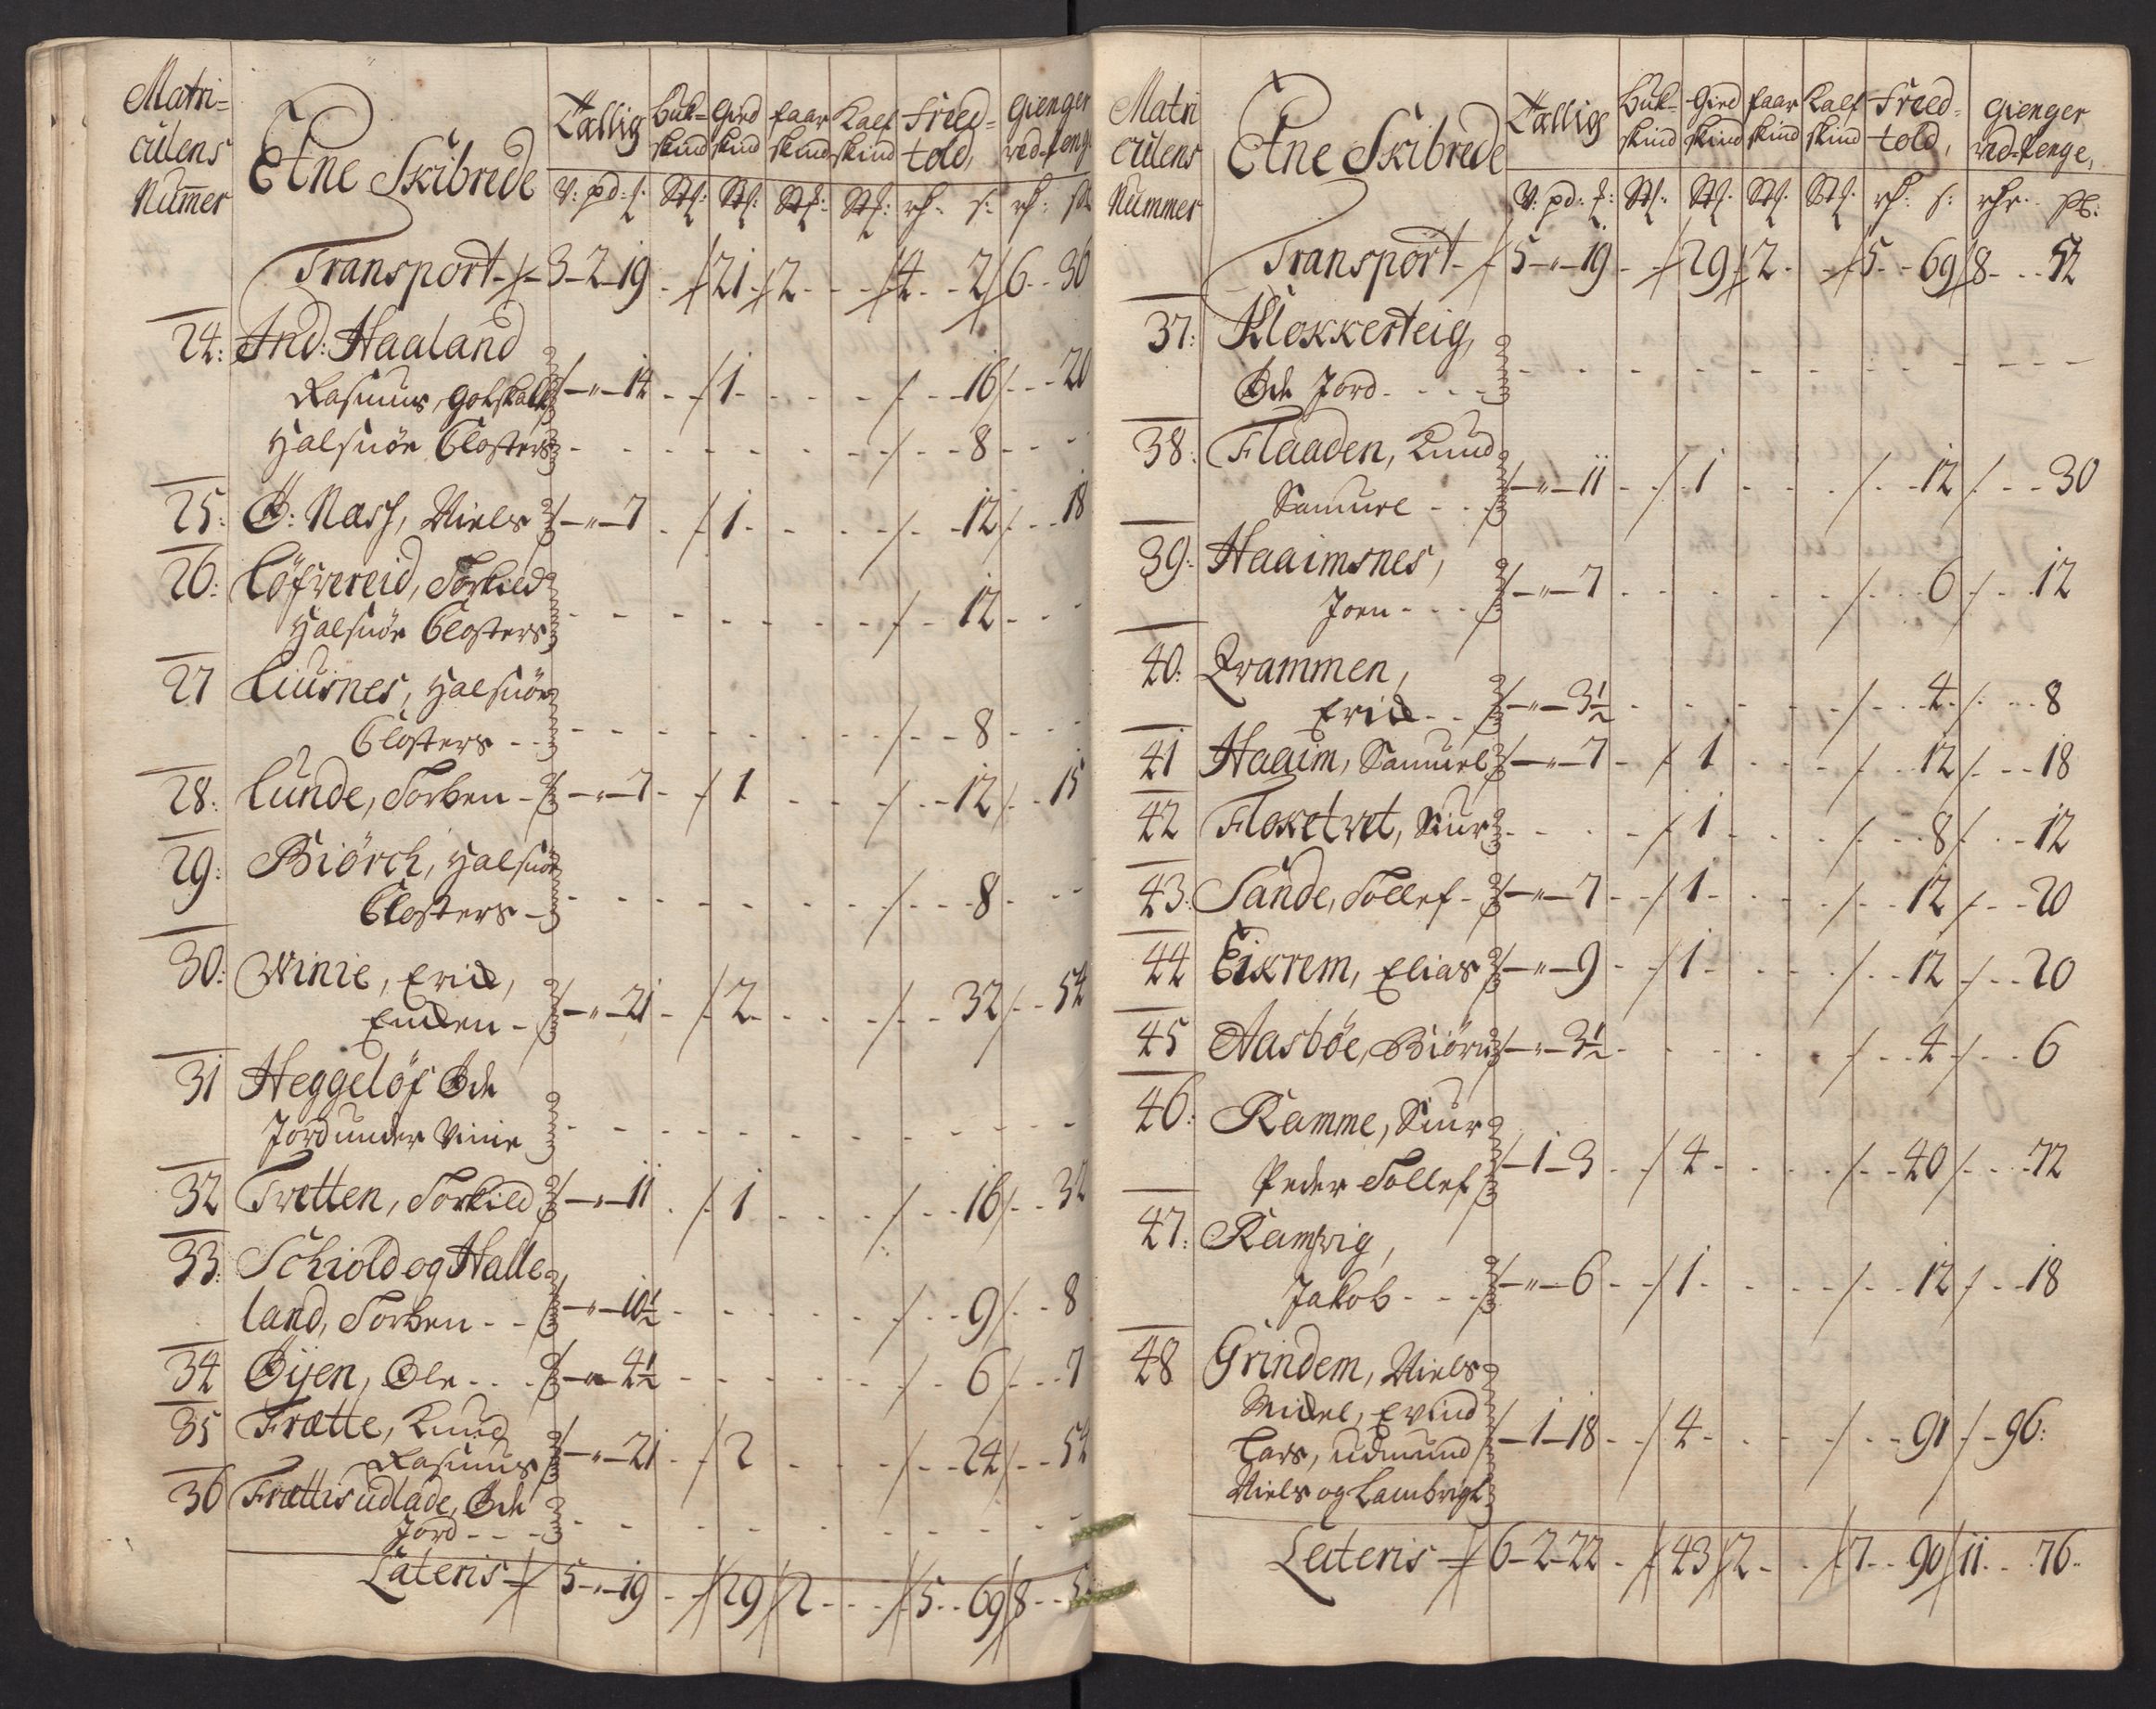 Matri=
culens
Nummer
Etne Skibrede
Tallig Buk= Gied faar Kalf Freed= Gienger
skind skind skind skind told, ved-Penge
V: pd: f: Stf: Stf: Stf: Stf: rf: s: rf:
Transport 3 - 2 - 19 21 2 4 2 6 36
24: Ind: Haaland
Rasmus, Gotskalk - " - 14 1 16 20
Halsnöe Closters 8
25: Ö: Næss, Niels - " - 7 1 12 18
26: Löfvereid, Torkild
Halsnöe Closters 12
27 Liusnes, Halsnöe
Closters 8
28: Lunde, Torben - " - 7 1 12 15
29: Biörch, Halsnöe
Closters 8
30: Winie, Erich,
Enden - " - 21 2 32 54
31 Heggelöf Öde
Jord under Vinie
32 Tvetten, Torkild - " - 11 1 16 32
33: Schiold og Halle
land, Torben - " - 10½ 9 8
34 Öÿen, Ole - " - 4½ 6 7
35 Frætte, Knud
Rasmus - " - 21 2 24 54
36 Frættis udlade, Öde
Jord
Lateris 5 - " - 19 29 2 5 69 8
Matri
culens
Nummer
Etne Skibrede
Tallig Buk= Gied faar Kalf Freed= Gienger
skind skind skind skind told, ved-Penge,
V: pd: f: Stf: Stf: Stf: Stf: rf: s: rhr. ss:
Transport 5 - " - 19 29 2 5 69 8 52
37: Klokkerteig,
Öde Jord
38: Flaaden, Knud
Samuel - " - 11 1 12 30
39: Haaimsnes,
Joen - " - 7 6 12
40: Qvammen,
Erich - " - 3½ 4 8
41 Haaim, Samuel - " - 7 1 12 18
42 Floketvet, Siur 1 8 12
43: Sande, Tollef - " - 7 1 12 20
44 Eikrem, Elias - " - 9 1 12 20
45 Aasböe, Biörn - " - 3½ 4 6
46: Ramme, Siur
Peder Tollef - 1 - 3 4 40 72
47: Ramsvig,
Jakob - " - 6 1 12 18
48 Grindem, Niels
Michel, Evind
Lars, Udmund - 1 - 18 4 91 96:
Niels og Lambrigt
Lateris 6 - 2 - 22 43 2 7 90 11 76